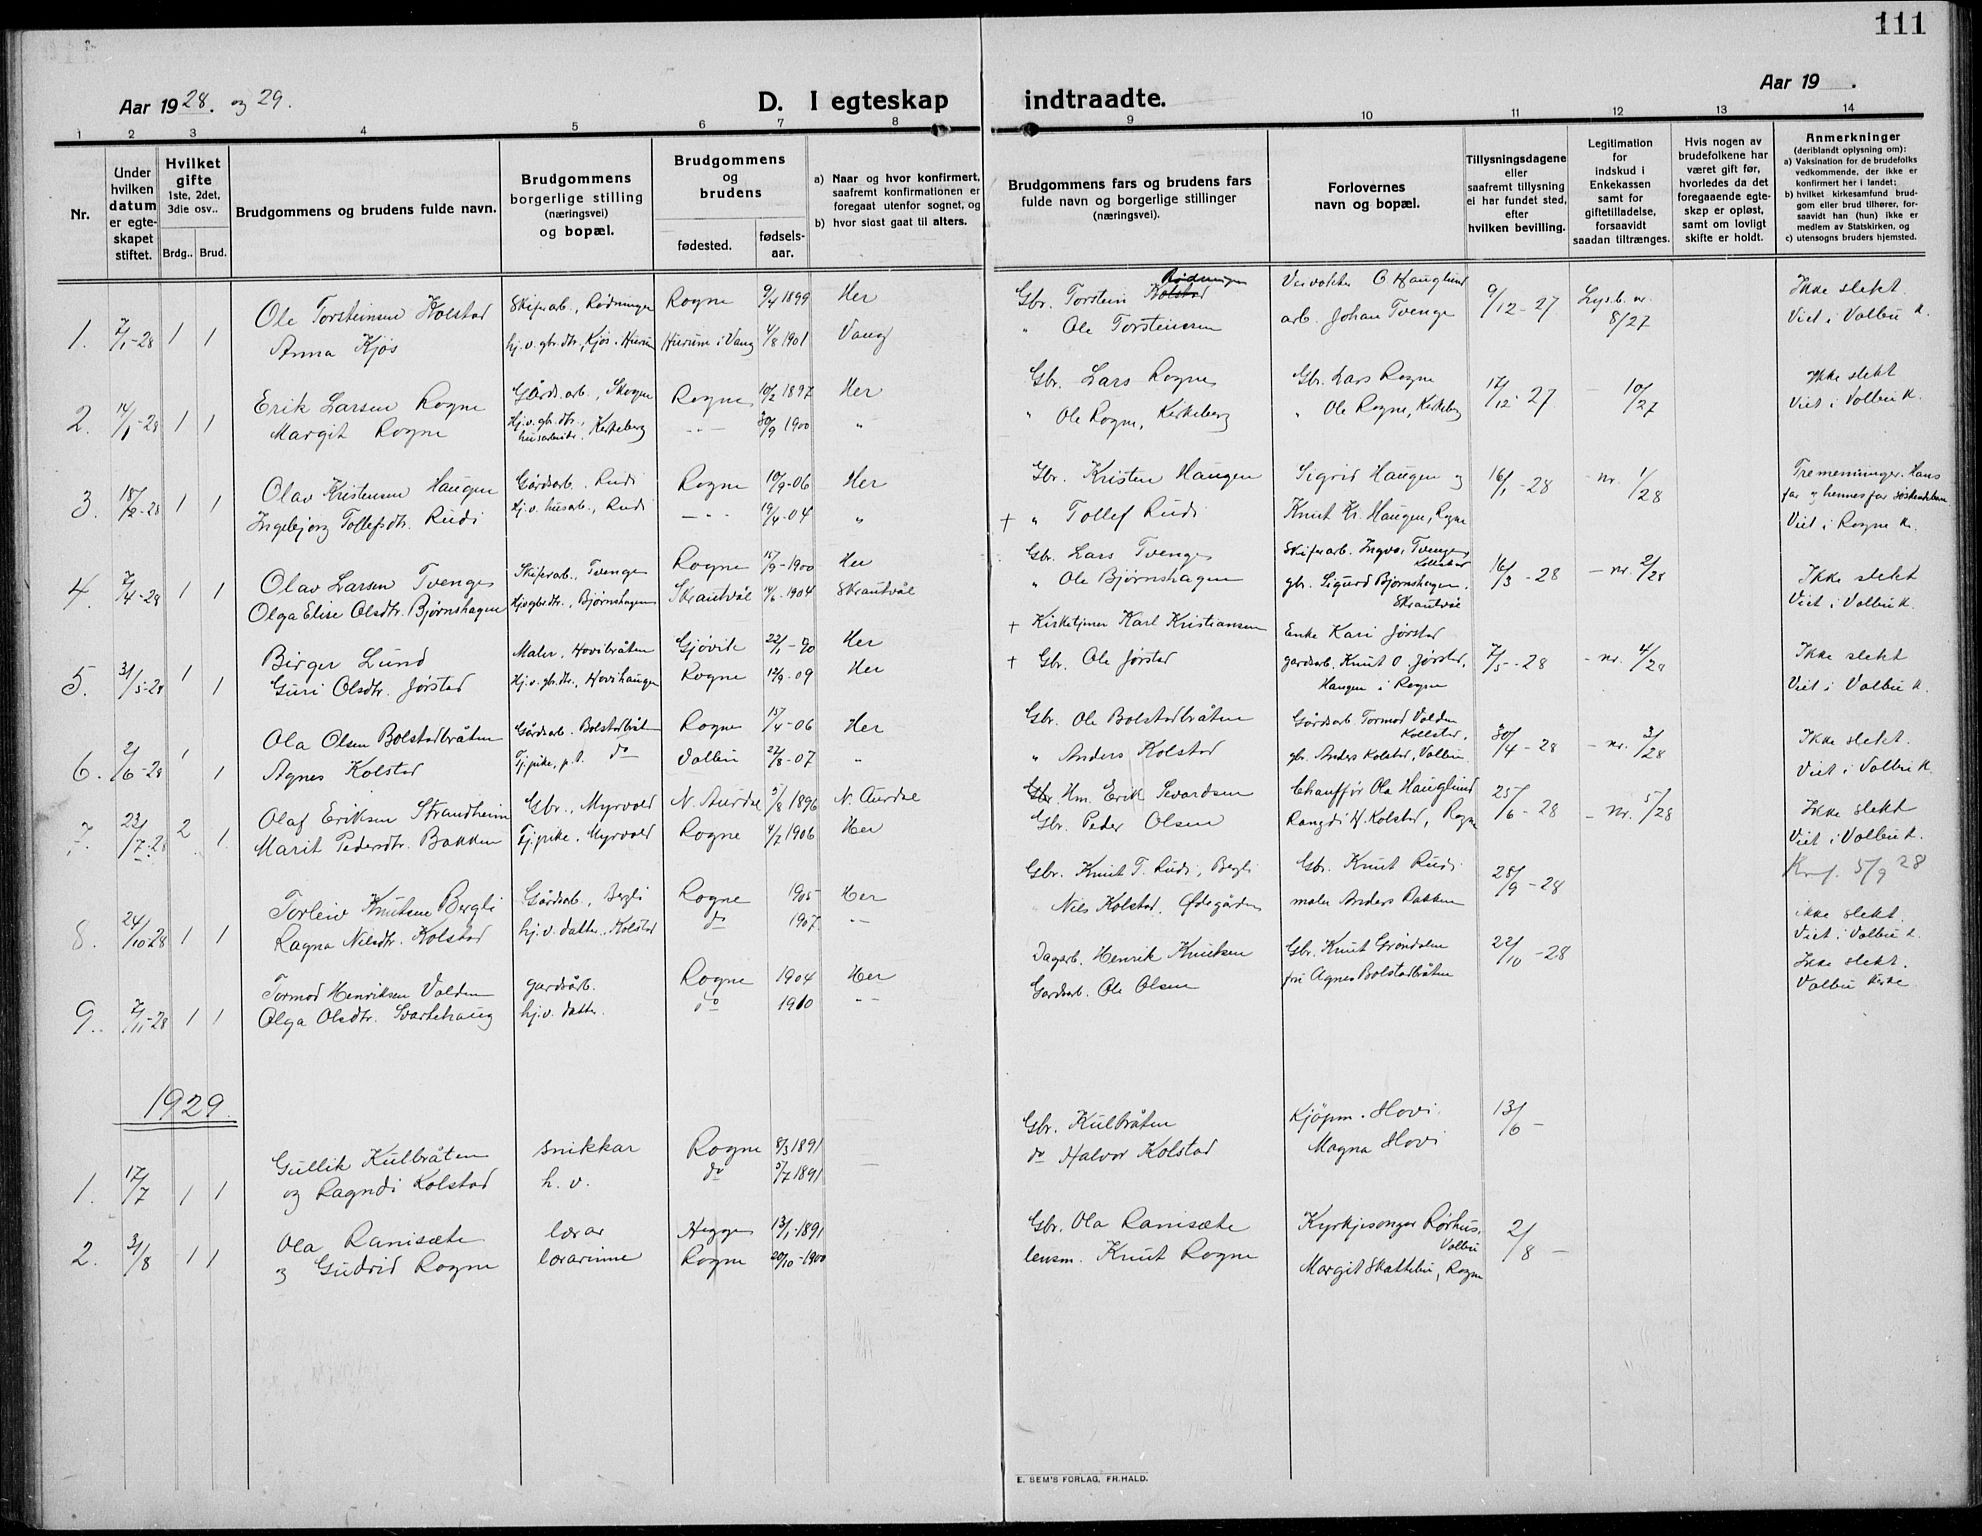 111
Aar 1928. og 29.
D. I egteskap indtraadte.
Aar 19 .
1 2 3 4 5 6 7 8 9 10 11 12 13 14
Nr.
Under hvilken datum er egteskapet stiftet.
Hvilket gifte 1ste, 2det, 3die osv.. Brdg.. Brud.
Brudgommens og brudens fulde navn.
Brudgommens borgerlige stilling (næringsvei) og bopæl.
Brudgommens og brudens fødested. fødselsaar.
a) Naar og hvor konfirmert, saafremt konfirmationen er foregaat utenfor sognet, og
b) hvor sidst gaat til alters.
Brudgommens fars og brudens fars fulde navn og borgerlige stillinger (næringsvei).
Forlovernes navn og bopæl.
Tillysningsdagene eller saafremt tillysning ei har fundet sted, efter hvilken bevilling.
Legitimation for indskud i Enkekassen samt for giftetilladelse, forsaavidt saadan tiltrænges.
Hvis nogen av brudefolkene har været gift før, hvorledes da det foregaaende egteskep er opløst, samt om lovligt skifte er holdt.
Anmerkninger (deriblandt oplysning om):
a) Vaksination for de brudefolks vedkommende, der ikke er konfirmert her i landet;
b) hvilket kirkesamfund brudgom eller brud tilhører, forsaavidt han (hun) ikke er medlem av Statskirken, og
c) utensogns bruders hjemsted.
1. 7/1-28 1 1 Ole Torsteinsen Kolstad Skiferarb., Rødningen Rogne 9/4 1899 Her Gbr. Torstein Kolstad Rødningen Veivokter O Hauglund 9/12-27 Lysb. nr. 8/27 Ikke slekt.
Anna Kjøs hj.v. gbr.dtr., Kjøs, Hurum Hurum i Vang 4/8 1901 Vang " Ole Torsteinsen arb. Johan Tvenge Viet i Volbu k.
2. 14/1-28 1 1 Erik Larsen Rogne Gårdsarb., Skogen Rogne 10/2 1897 Her Gbr. Lars Rogne Gbr. Lars Rogne 17/12-27 - 10/27 Ikke slekt
Margit Rogne Hj.v. gbr.dtr., husarbeide, Kirkeberg - " - 30/9 1900 " " Ole Rogne, Kirkeberg " Ole Rogne, Kirkeberg Viet i Volbu K.
3. 18/2-28 1 1 Olav Kristensen Haugen Gårdsarb. Rudi Rogne 10/9-06 Her Gbr. Kristen Haugen Sigrid Haugen og 16/1-28 - nr. 1/28 Tremenninger. Hans
Ingebjørg Tollefsdtr. Rudi Hj.v. husarb., Rudi - " - 19/4-04 " + " Tollef Rudi Knut Kr. Haugen, Rogne far og hennes far søskendebarn
Viet i Rogne k.
4. 7/4-28 1 1 Olav Larsen Tvenge Skiferarb., Tvenge Rogne 15/9-1900 Her Gbr. Lars Tvenge Skiferarb. Ingvar Tvenge, Kollstad 16/3-28 - nr. 2/28 Ikke slekt
Olga Elise Olsdtr. Bjørnshagen Hjv gbrdtr., Bjørnshagen Skrautvål 14/6-1904 Skrautvål " Ole Bjørnshagen gbr. Sigurd Bjørnshagen, Skrautvål Viet i Volbu k.
5. 31/5-28 1 1 Birger Lund Maler, Hovibråten Gjøvik 22/1-90 Her + Kirketjener Karl Kristiansen Enke Kari Jørstad 7/5-28 - nr. 4/28 Ikke slekt
Guri Olsdtr. Jørstad Hj.v. gbr.dtr., Hovihaugen Rogne 12/9-09 Her + Gbr. Ole Jørstad gardsarb. Knut O Jørstad, Haugen i Rogne Viet i Volbu k.
6. 2/6-28 1 1 Ola Olsen Bolstadbråten Gårdsarb. Bolstadbråten Rogne 15/4-06 Her Gbr. Ole Bolstadbråten Gårdsarb. Tormod Volden Kollstad, 30/4-28 - nr. 3/28 Ikke slekt.
Agnes Kolstad Tj.pike, p.t. do Volbu 22/8-07 " " Anders Kolstad gbr. Anders Kolstad, Volbu Viet i Volbu K.
7. 23/7-28 2 1 Olaf Eriksen Strandheim Gbr., Myrvold N. Aurdal 5/8 1896 N. Aurdal Gbr. Hm. Erik Sevardsen Chauffør Ola Hauglund 25/6-28 - nr. 5/28 Ikke slekt
Marit Pedersdtr. Bakken Tj.pike, Myrvold Rogne 4/7 1906 Her Gbr. Peder Olsen Rangdi H. Kolstad, Rogne Viet i Volbu k.
8. 24/10-28 1 1 Torleiv Knutsen Bergli Gårdsarb, Bergli Rogne 1905 Her Gbr. Knut T. Rudi, Bergli Gbr. Knut Rudi 25/9-28 5/9 28
Ragna Nilsdtr. Kolstad hj.v. datter, Kolstad do 1907 - " - Nils Kolstad, Ødegården maler Anders Bakken ikke slekt.
Viet i Volbu k.
9. 7/11-28 1 1 Tormod Henriksen Volden gardsarb. Rogne 1904 Her Dagarb. Henrik Knutsen Gbr. Knut Grøndalen 22/10-28 Ikke slekt.
Olga Olsdtr. Svartehaug hj.v. datter. do 1910 - " - Gardsarb. Ole Olsen fru Agnes Bolstadbråten Volbu kirke
1929.
1. 17/7 1 1 Gullik Kulbråten snikkar Rogne 8/3 1891 Gbr. Kulbråten Kjøpm. Hovi 13/6 -
og Ragndi Kolstad h. v. do 5/7 1891 — do Halvor Kolstad Magna Hovi
2. 31/8 1 1 Ola Ranisæte lærar Hegge 13/1-1891 Gbr. Ola Ranisæte Kyrkjesongar Rørhus, Volbu 2/8 —
og Gudrid Rogne lærarinne Rogne 20/10-1900 lensm. Knut Rogne Margit Skattebu, Rogne
E. SEM'S FORLAG, FR.HALD.